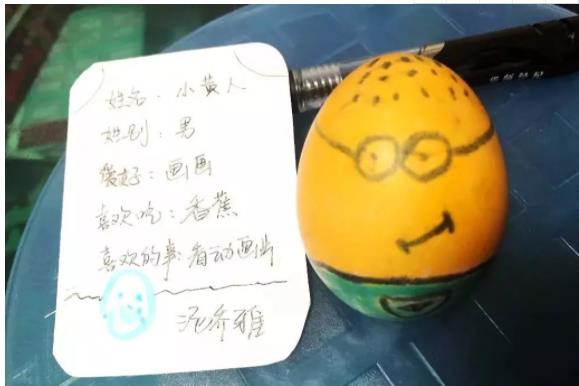 姓名：小黄人
姓别：男
爱好：画画
喜欢吃：香蕉
喜欢的事：看动画片